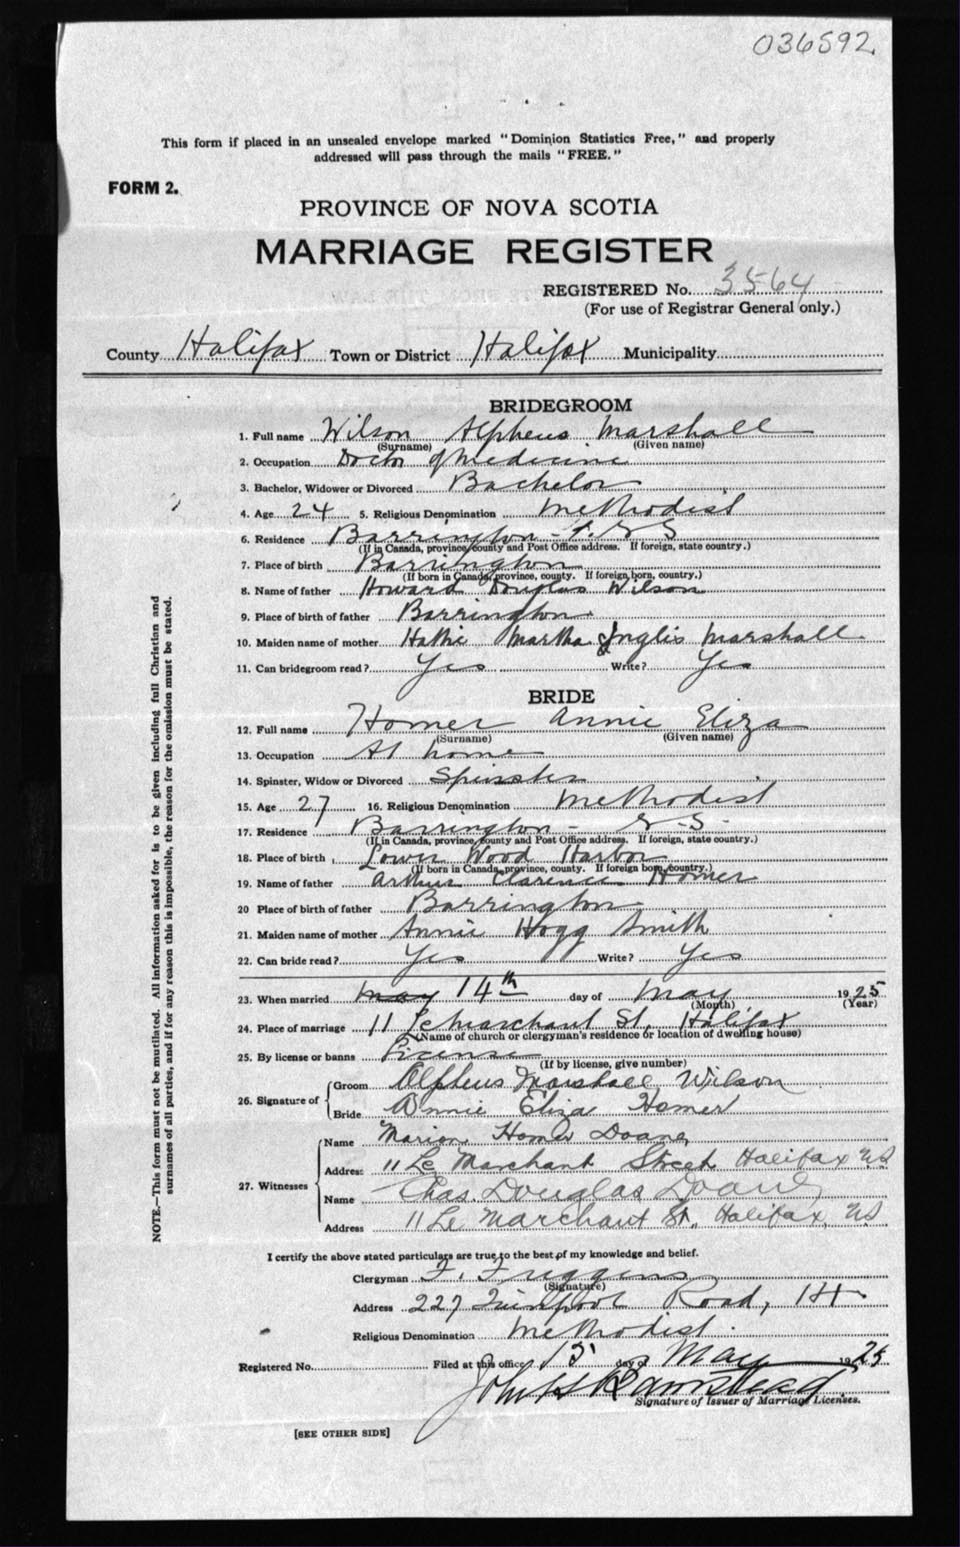 036592
This form if placed in an unsealed envelope marked "Dominion Statistics Free," and properly
addressed will pass through the mails "FREE."
FORM 2.
PROVINCE OF NOVA SCOTIA
MARRIAGE REGISTER
REGISTERED No. 3564
(For use of Registrar General only.)
County Halifax Town or District Halifax Municipality
BRIDEGROOM
1. Full name Wilson Alpheus Marshall
(Surname) (Given name)
2. Occupation Doctor of Medicine
3. Bachelor, Widower or Divorced Bachelor
4. Age 24 5. Religious Denomination Methodist
6. Residence Barrington
(If in Canada, province, county and Post Office address. If foreign, state country.)
7. Place of birth Barrington
(If born in Canada, province, county. If foreign born, country.)
8. Name of father Howard Douglas Wilson
9. Place of birth of father Barrington
10. Maiden name of mother Hattie Martha Inglis Marshall
11. Can bridegroom read? Yes Write? Yes
BRIDE
12. Full name Homer Annie Eliza
(Surname) (Given name)
13. Occupation At home
14. Spinster, Widow or Divorced Spinster
15. Age 27 16. Religious Denomination Methodist
17. Residence Barrington - N.S.
(If in Canada, province, county and Post Office address. If foreign, state country.)
18. Place of birth Lower Wood Harbor
(If born in Canada, province, county. If foreign born, country.)
19. Name of father Arthur Clarence Homer
20 Place of birth of father Barrington
21. Maiden name of mother Annie Hogg Smith
22. Can bride read? Yes Write? Yes
23. When married May 14th day of May 1925
(Month) (Year)
24. Place of marriage 11 LeMarchant St. Halifax
(Name of church or clergyman's residence or location of dwelling house)
25. By license or banns License
(If by license, give number)
26. Signature of Groom Alpheus Marshall Wilson
Bride Annie Eliza Homer
27. Witnesses Name Marion Homer Doane
Address 11 Le Marchant Street Halifax NS
Name Chas. Douglas Doane
Address 11 Le Marchant St. Halifax, NS
I certify the above stated particulars are true to the best of my knowledge and belief.
Clergyman F. Friggens
(Signature)
Address 227 Quinpool Road, H.
Religious Denomination Methodist.
Registered No. Filed at this office 15 day of May 1925
John H Barnstead
Signature of Issuer of Marriage Licenses.
[SEE OTHER SIDE]
NOTE.—This form must not be mutilated. All information asked for is to be given including full Christian and
surnames of all parties, and if for any reason this is impossible, the reason for the omission must be stated.